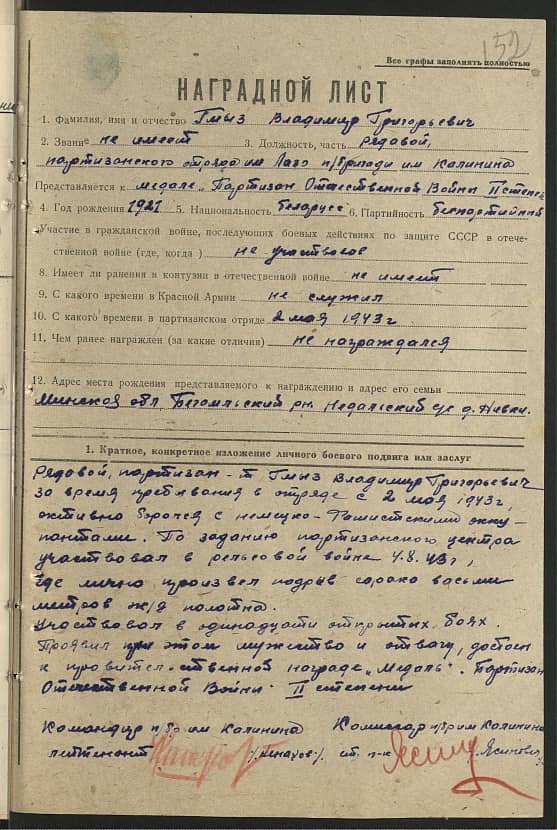 152
Все графы заполнять полностью
НАГРАДНОЙ ЛИСТ
1. Фамилия, имя и отчество Гмыз Владимир Григорьевич
2. Звание не имеет 3. Должность, часть рядовой,
партизанского отряда им Лазо п/бригады им Калинина
Представляется к медале „Партизан Отечественной Войны II степен
4. Год рождения 1921 5. Национальность беларусс 6. Партийность беспартийный
Участие в гражданской войне, последующих боевых действиях по защите СССР в отече-
ственной войне (где, когда) не участвовал
8. Имеет ли ранения и контузии в отечественной войне не имеет
9. С какого времени в Красной Армии не служил
10. С какого времени в партизанском отряде 2 мая 1943 г
11. Чем ранее награжден (за какие отличия) не награждался
12. Адрес места рождения представляемого к награждению и адрес его семьи
Минская обл Бегомльский рн. Недальский с/с д. Нивки.
1. Краткое, конкретное изложение личного боевого подвига или заслуг
Рядовой, партизан - т Гмыз Владимир Григорьевич
за время пребывания в отряде с 2 мая 1943 г,
активно боролся с немецко-фашистскими окку-
пантами. По заданию партизанского центра
участвовал в рельсовой войне 4.8.43 г,
где лично произвел подрыв сорока восьми
метров ж/д полотна.
Участвовал в одинадцати открытых боях.
Проявил при этом мужество и отвагу, достоен
к правител-ственной награде „Медаль". Партизан
Отечественной Войны II степени
Командир п/бр им Калинина Комиссар п/бр им Калинина
лейтенант ст.